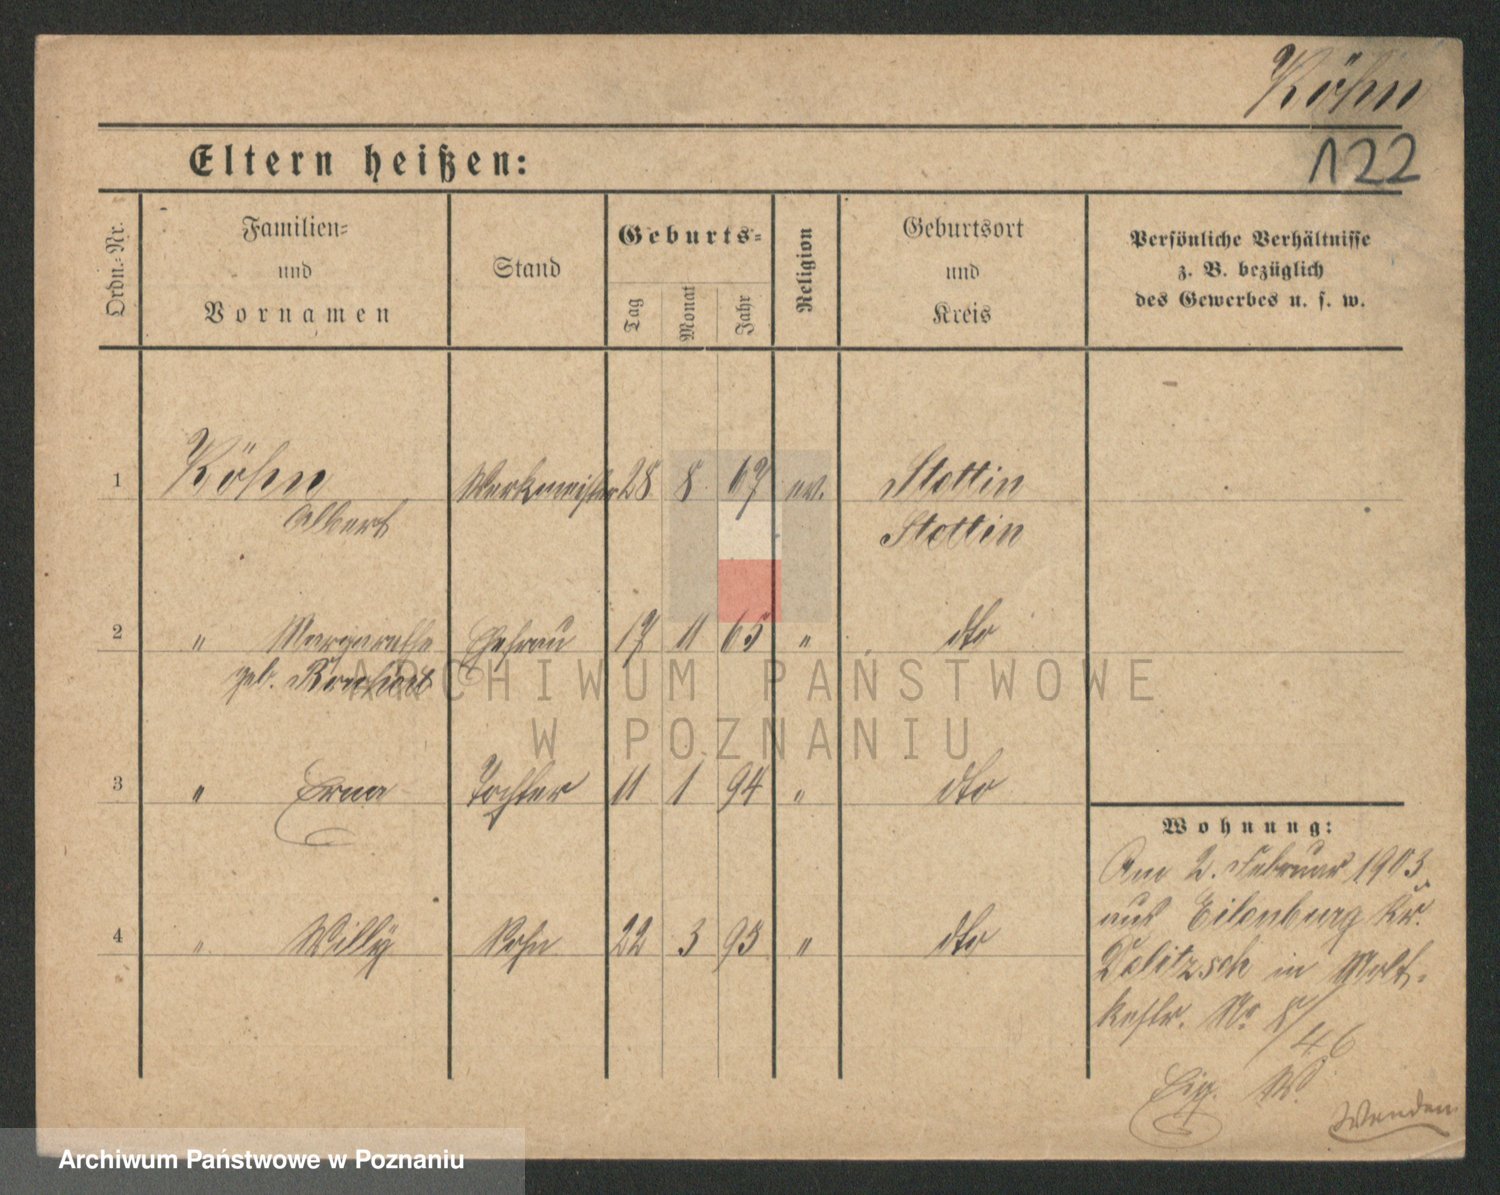 Köhn
122
Eltern heißen:
Ordn.-Nr.
Familien-
und
Vornamen
Stand
Geburts-
Tag
Monat
Jahr
Religion
Geburtsort
und
Kreis
Persönliche Verhältnisse
z. B. bezüglich
des Gewerbes u. s. w.
1 Köhn Werkmeister 28 8 67 ev. Stettin
Albert Stettin
2 " Margarethe Ehefrau 17 11 65 " dto
geb.
3 " Erna Tochter 11 1 94 " dto
4 " Willy Sohn 22 3 93 " dto
Wohnung:
Am 2. Februar 1903
aus Eilenburg Kr.
Delitzsch in Molt-
kestr. No 8/
46
Eig. W.
Wenden
ARCHIWUM PAŃSTWOWE
W POZNANIU
Archiwum Państwowe w Poznaniu